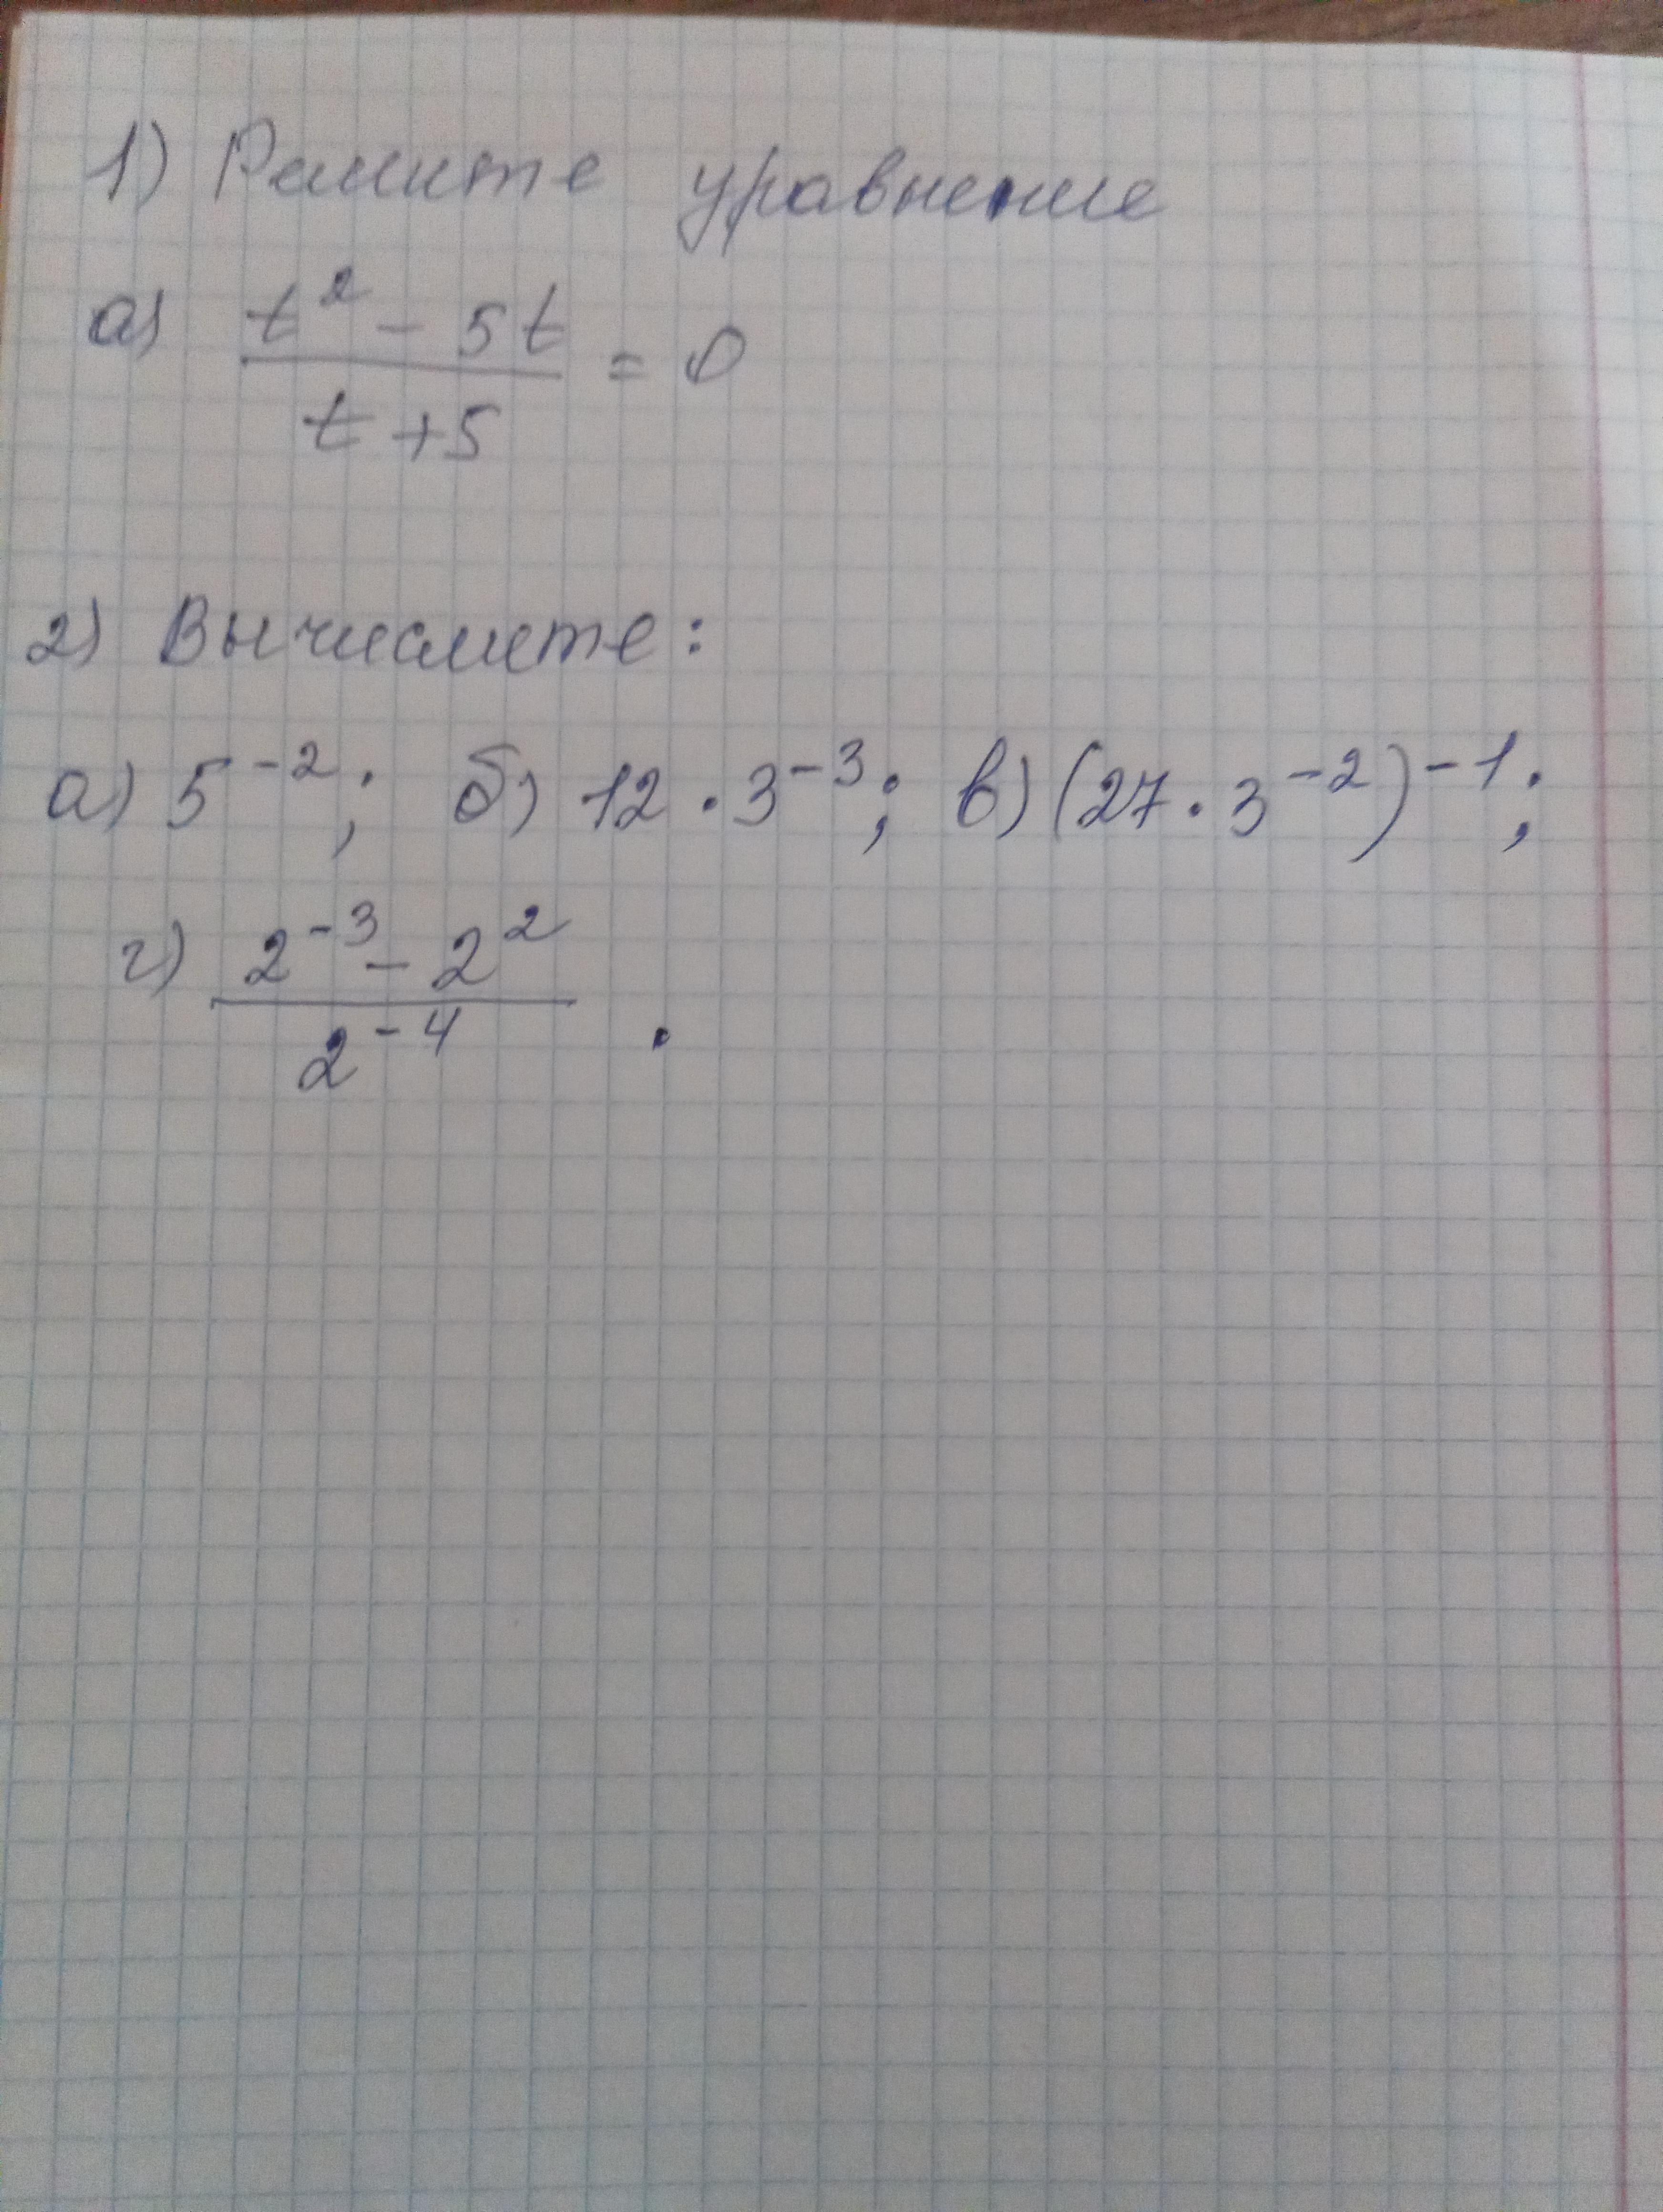 1) Решите уравнение
а) (t² - 5t)/(t + 5) = 0
2) Вычислите:
а) 5⁻²; б) 12 · 3⁻³; в) (27 · 3⁻²)⁻¹;
г) (2⁻³ - 2²)/2⁻⁴ .